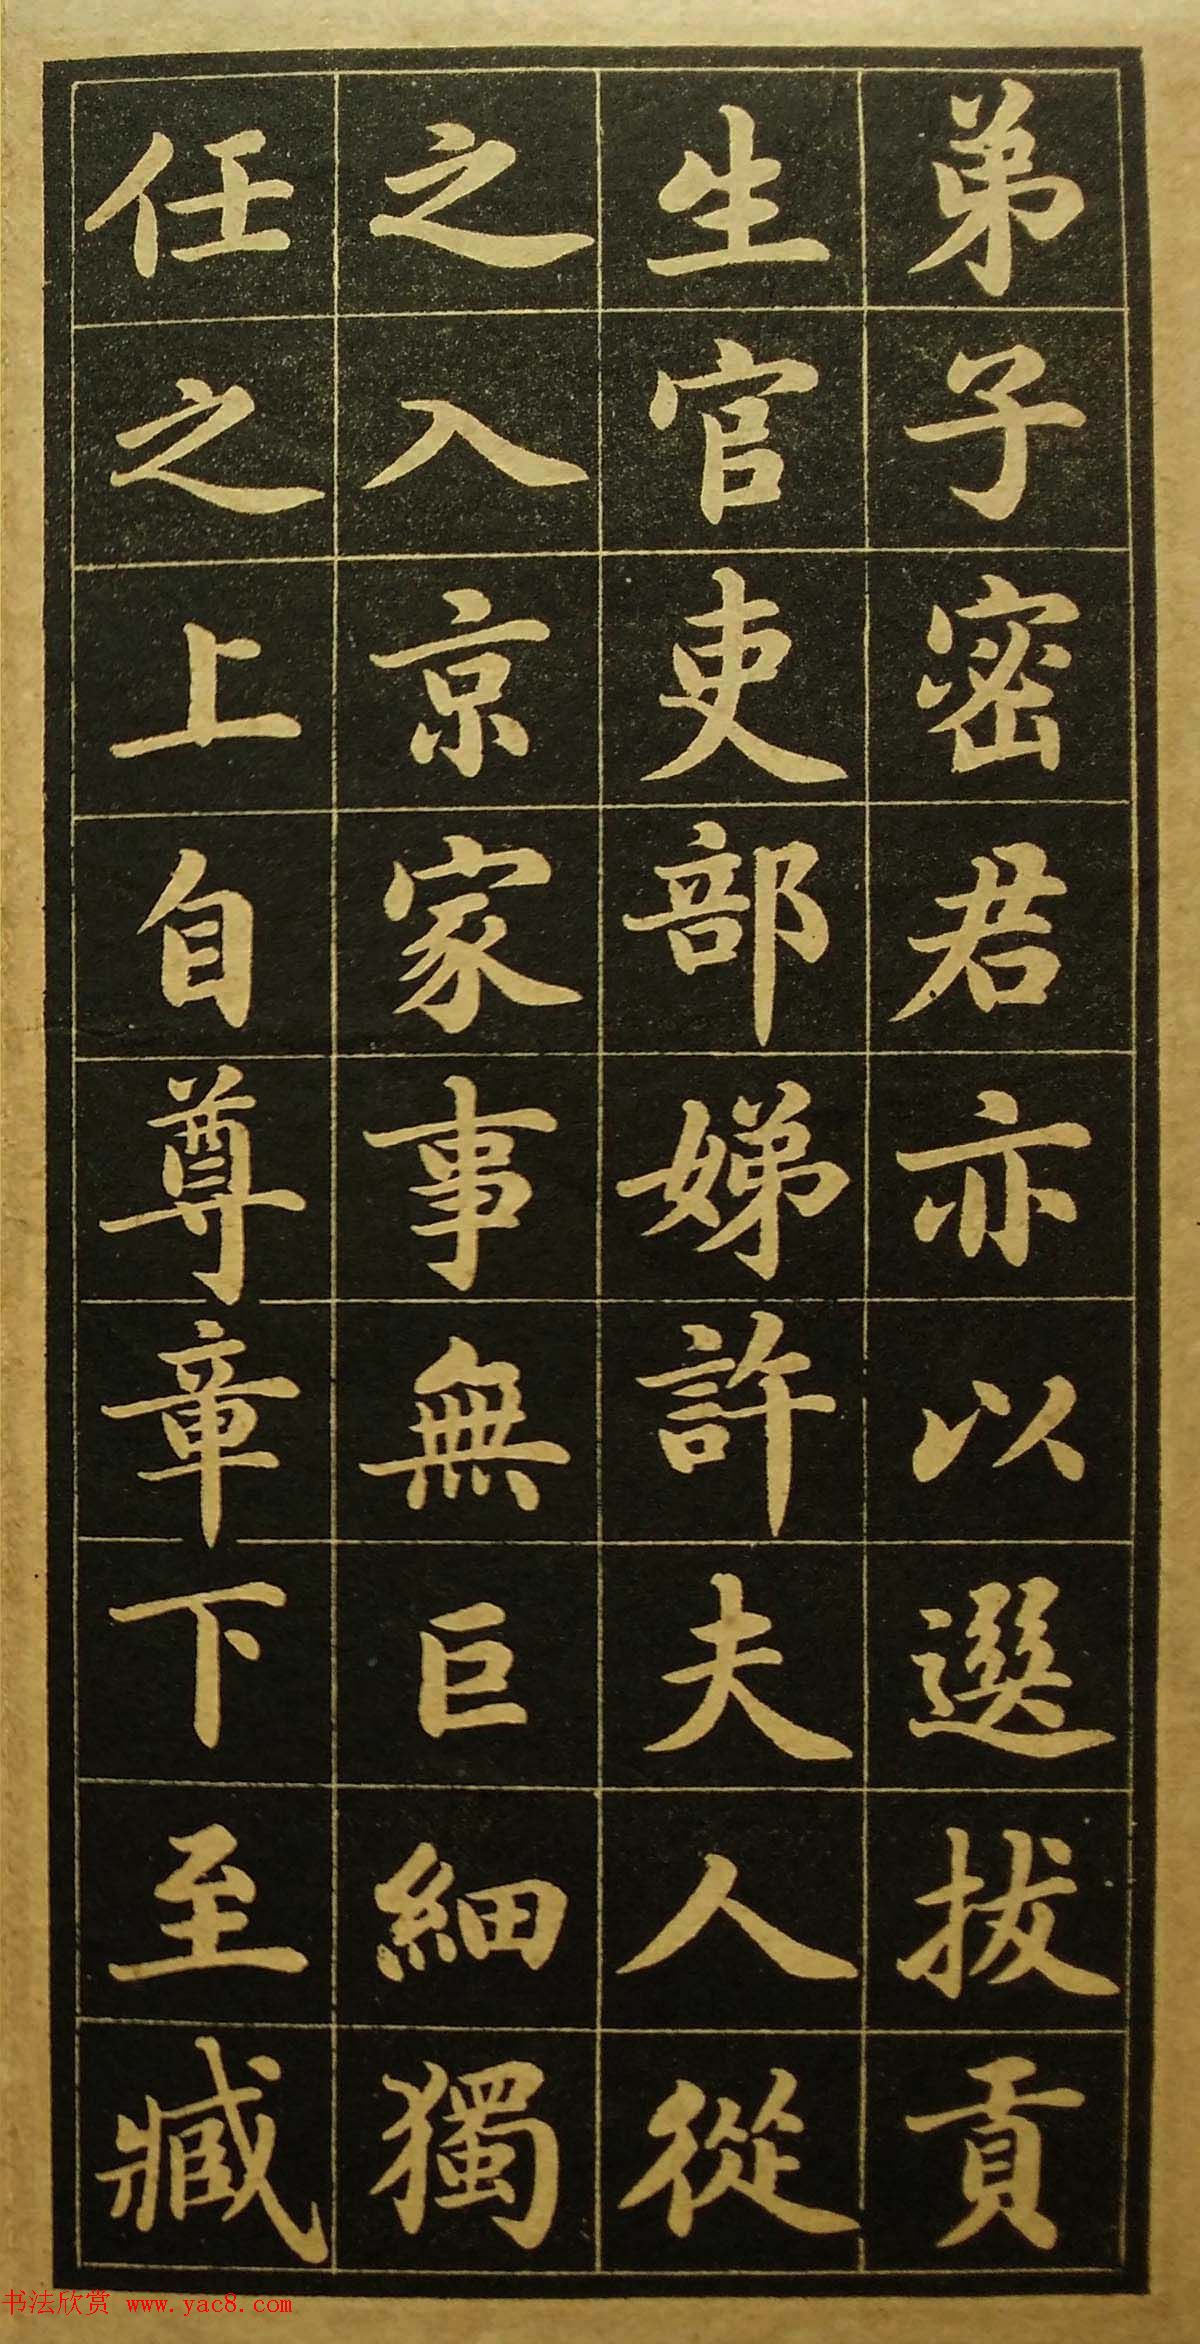 弟子密君亦以選拔貢
生官吏部娣許夫人從
之入京家事無巨細獨
任之上自尊章下至臧
书法欣赏 www.yac8.com